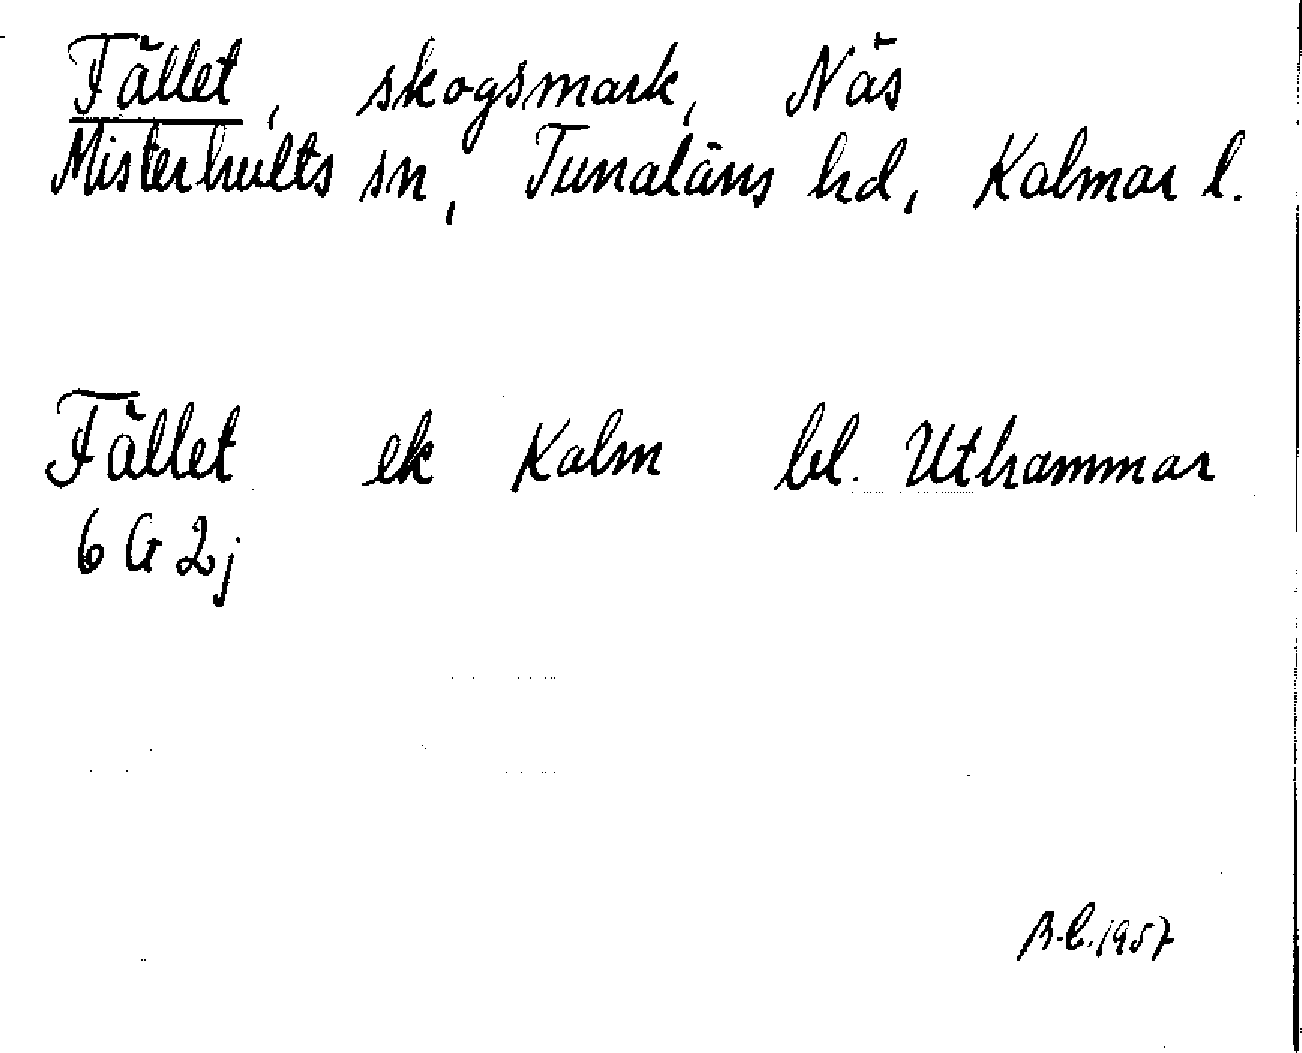 Fället, skogsmark, Näs
Misterhults sn, Tunaläns hd, Kalmar l.
Fället ek Kalm bl. Uthammar
6 G 2j
B.L. 1957